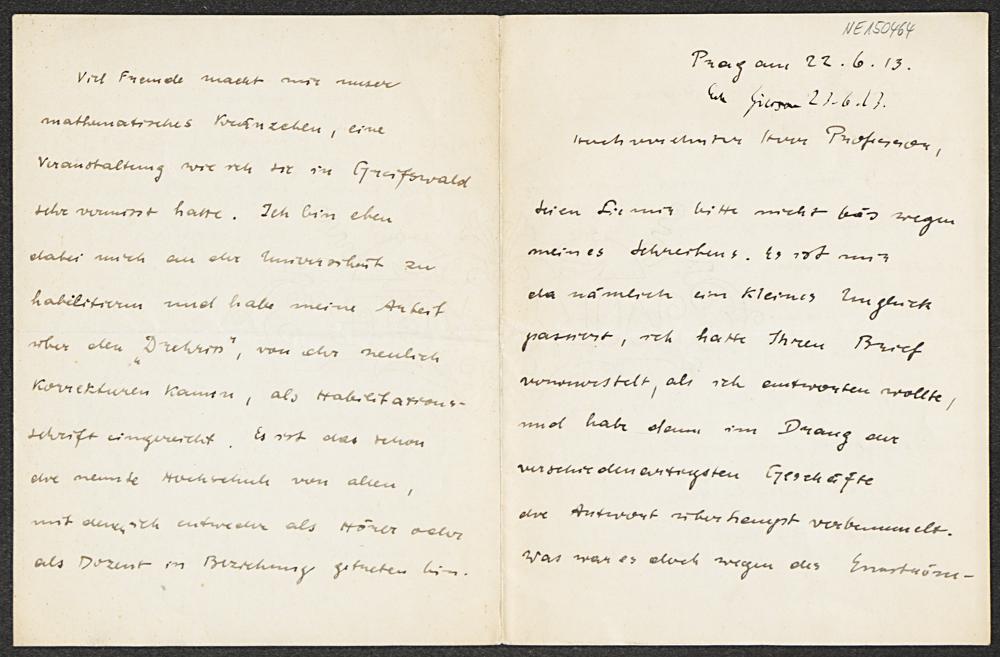 NE150464
Prag am 22.6.13.
23.6.13.
Hochverehrter Herr Professor,
Seien Sie mir bitte nicht bös wegen
meines Schreibens. Es ist mir
da nämlich ein kleines Unglück
passiert, ich hatte Ihren Brief
als ich antworten wollte,
und habe dann im Drang der
verschiedenartigsten Geschäfte
die Antwort überhaupt verbummelt.
Was war es doch wegen des
Viel Freude macht mir unser
mathematisches Kränzchen, eine
Veranstaltung wie ich sie in Greifswald
sehr vermisst hatte. Ich bin eben
dabei mich an der Universität zu
habilitieren und habe meine Arbeit
über den „Drehriss", von der neulich
Korrekturen kamen, als Habilitations-
schrift eingereicht. Es ist das schon
die neunte Hochschule von allen,
mit denen ich entweder als Hörer oder
als Dozent in Beziehung getreten bin.